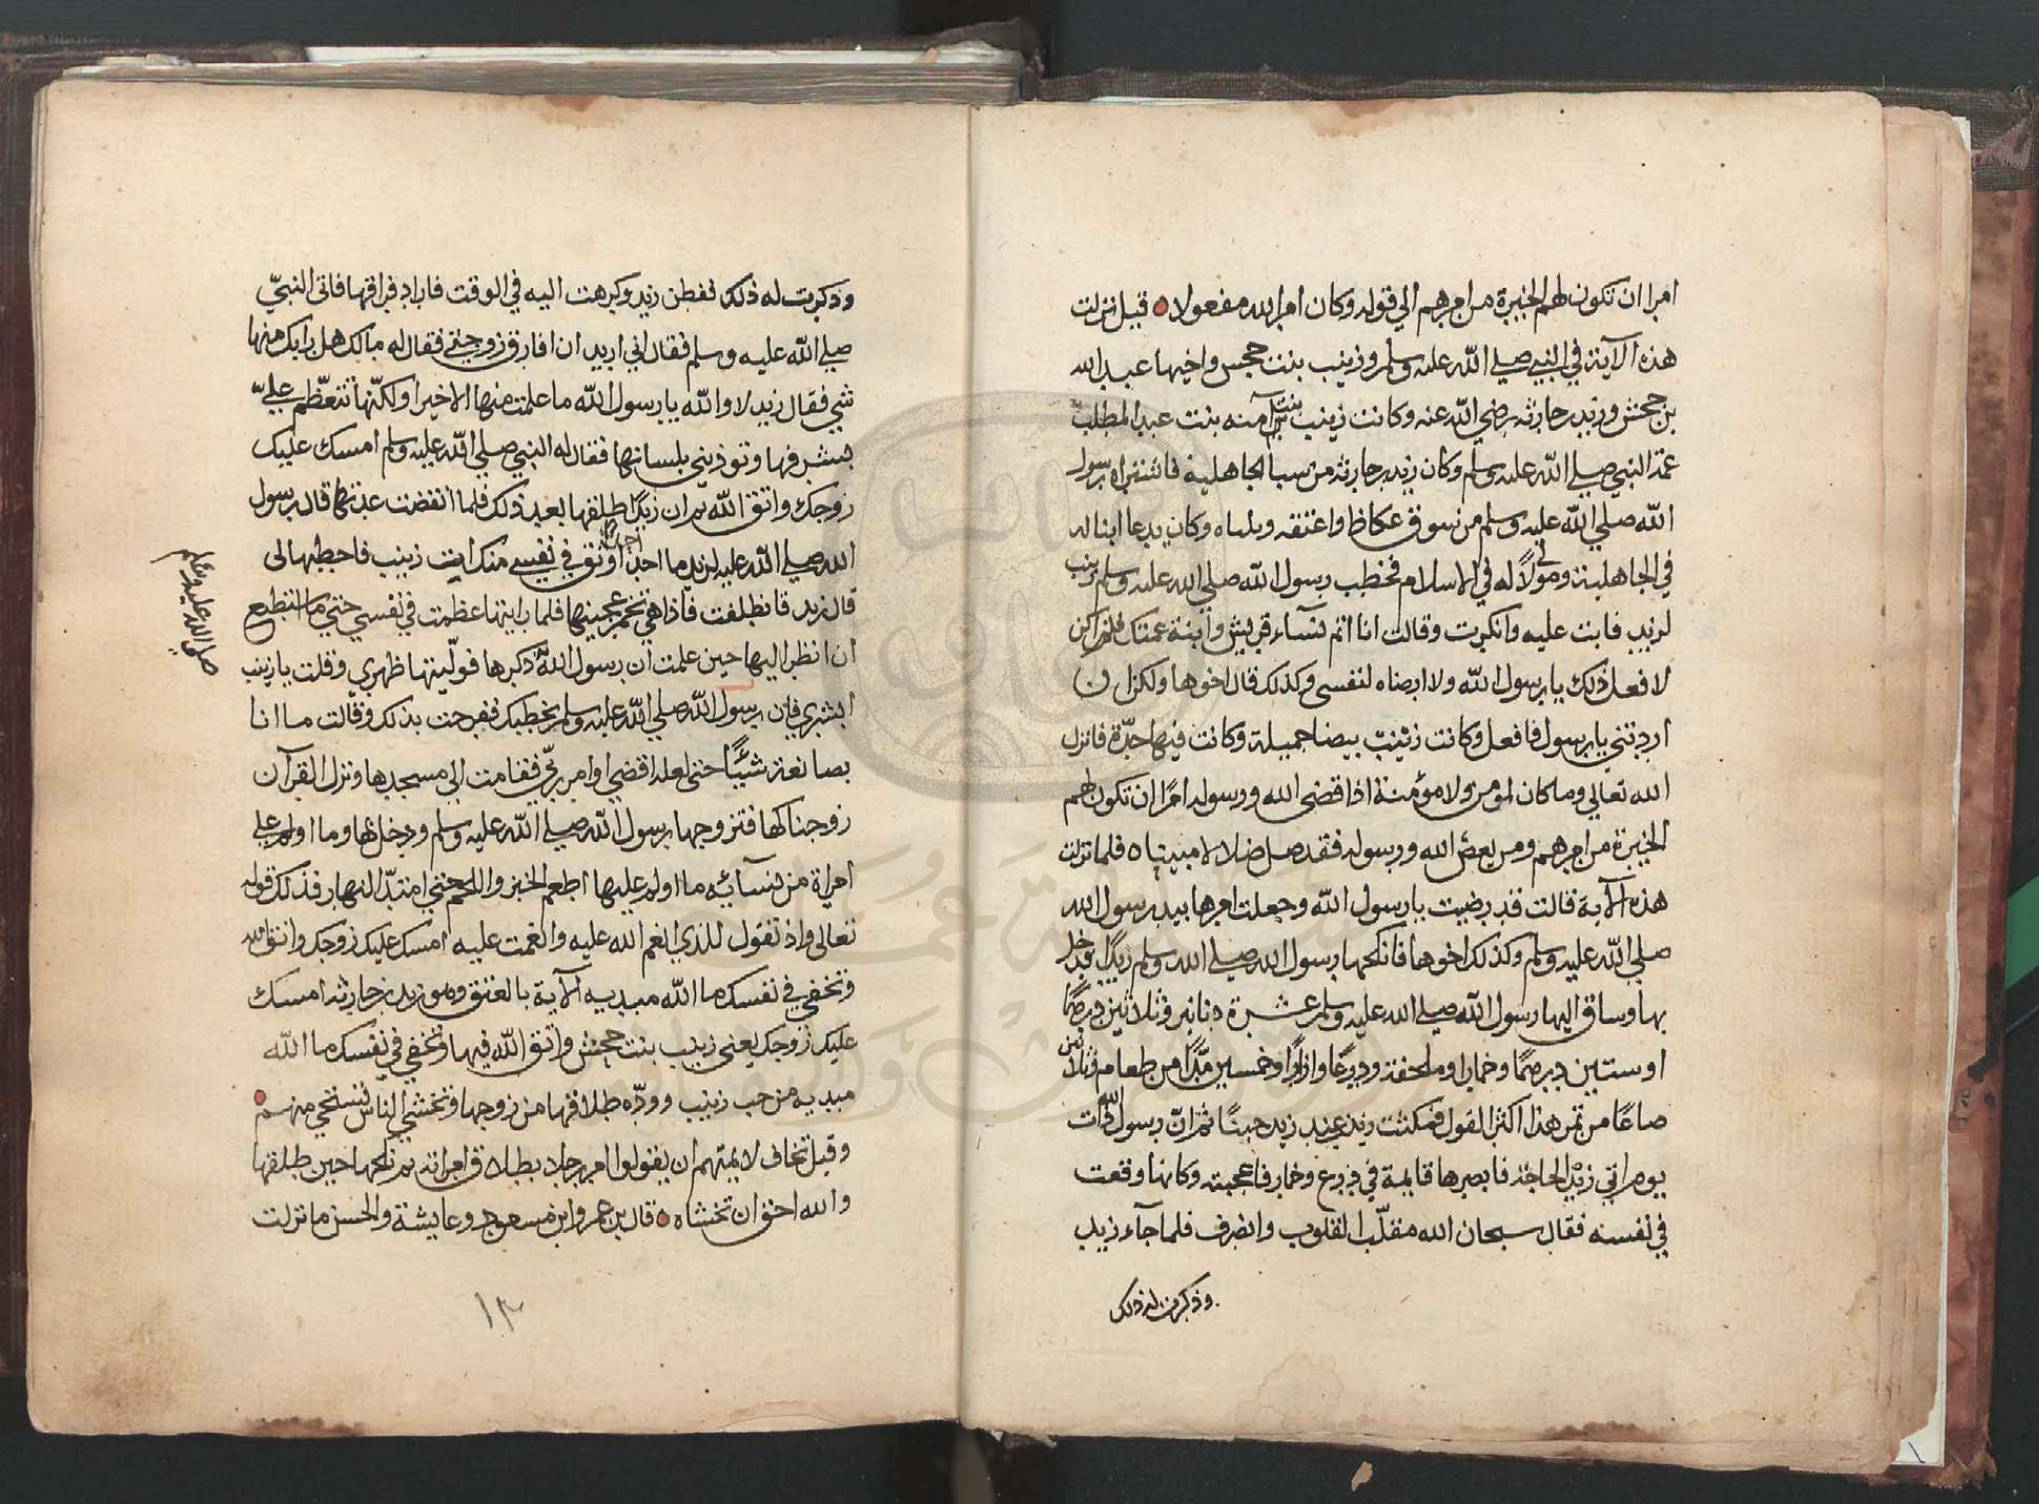 امرا ان تكون لهم الخيرة من امرهم الي قوله وكان امر الله مفعولا ه قيل نزلت
هذه الآية في النبي صلي الله عليه وسلم وزينب بنت جحس واخيها عبد الله
بن جحش وزيد بن حارثه رضي الله عنه وكانت زينب بنت آمنه بنت عبد المطلب
عمة النبي صلي الله عليه وسلم وكان زيد بن حارثه من سبا الجاهلية فاشتراه رسول
الله صلي الله عليه وسلم من سوق عكاظ واعتقه وتبناه وكان يدعا ابنا له
في الجاهلية ومولًا له في الاسلام فخطب رسول الله صلي الله عليه وسلم زينب
لزيد فابت عليه وانكرت وقالت انا اتم نسآء قريش وابنة عمتك فلم اكن
لافعل ذلك يا رسول الله ولا ارضاه لنفسي وكذلك قال اخوها ولكن ان
اردتني يا رسول فافعل وكانت زينب بيضا جميلة وكانت فيها حدّة فانزل
الله تعالي وما كان لمؤمن ولا مؤمنة اذا قضي الله ورسوله امرًا ان تكون لهم
الخيرة من امرهم ومن يعص الله ورسوله فقد ضل ضلالا مبينا ه فلما نزلت
هذه الآية قالت قد رضيت يا رسول الله وجعلت امرها بيد رسول الله
صلي الله عليه وسلم وكذلك اخوها فانكحها رسول الله صلي الله وسلم زيدًا فدخل
بها وساق اليها رسول الله صلي الله عليه وسلم عشرة دنانير وثلاثين درهمًا
او ستين درهمًا وخمارا وملحفة ودرعًا وازارًا وخمسين مدًا من طعام وثلاثين
صاعًا من تمر هذا اكثر القول فمكثت زينب عند زيد حينًا ثم انّ رسول الله ذات
يوم اتي زيدًا لحاجة فابصرها قايمة في درع وخمار فاعجبته وكانها وقعت
في نفسه فقال سبحان الله مقلّب القلوب وانصرف فلما جآء زيد
وذكرت له ذلك
وذكرت له ذلك ففطن زيد وكرهت اليه في الوقت فاراد فراقها فاتي النبيّ
صلي الله عليه وسلم فقال اني اريد ان افارق زوجتي فقال له مالك هل رابك منها
شي فقال زيد لا والله يا رسول الله ما علمت منها الا خيرا ولكنّها تتعظّم عليّ
بشرفها وتوذيني بلسانها فقال له النبي صلي الله عليه وسلم امسك عليك
زوجك واتق الله ثم ان زيدًا طلقها بعد ذلك فلما انقضت عدتها قال رسول
الله صلي الله عليه لزيد ما اجد احدًا اوثق في نفسي منك ايت زينب فاخطبها لي
قال زيد فانطلقت فاذا هي تخمر عجينها فلما رايتها عظمت في نفسي حتي ما استطيع
ان انظر اليها حين علمت ان رسول الله ذكرها فولّيتها ظهري وقلت يا زينب
صلي الله عليه وسلم
ابشري فان رسول الله صلي الله عليه وسلم يخطبك ففرحت بذلك وقالت ما انا
بصانعة شيئًا حتي اوامر ربّي فقامت الي مسجدها ونزل القرآن
زوجناكها فتزوجها رسول الله صلي الله عليه وسلم ودخل بها وما اولم علي
امراة من نسآئه ما اولم عليها اطعم الخبز واللحم حتي امتدّ النهار فذلك قوله
تعالي واذ تقول للذي انعم الله عليه وانعمت عليه امسك عليك زوجك واتق الله
وتخفي في نفسك ما الله مبديه الآية بالعتق وهو زيد بن حارثه امسك
عليك زوجك يعني زينب بنت جحش واتق الله فيها وتخفي في نفسك ما الله
مبديه من حب زينب وودّه طلاقها من زوجها وتخشي الناس تستحي منهم
وقيل تخاف لايمتهم ان يقولوا امر رجلا بطلاق امراته ثم نكحها حين طلقها
والله احق ان تخشاه ه قال بن عمر وابن مسعود وعايشة والحسن ما نزلت
١٣